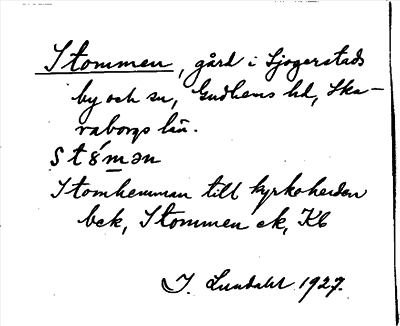 Stommen, gård i Sjogerstads
by och sn, Gudhems hd, Ska-
raborgs län.
stómən
Stomhemman till kyrkoherden
bek, Stommen ek, Kb
I. Lundahl 1927.